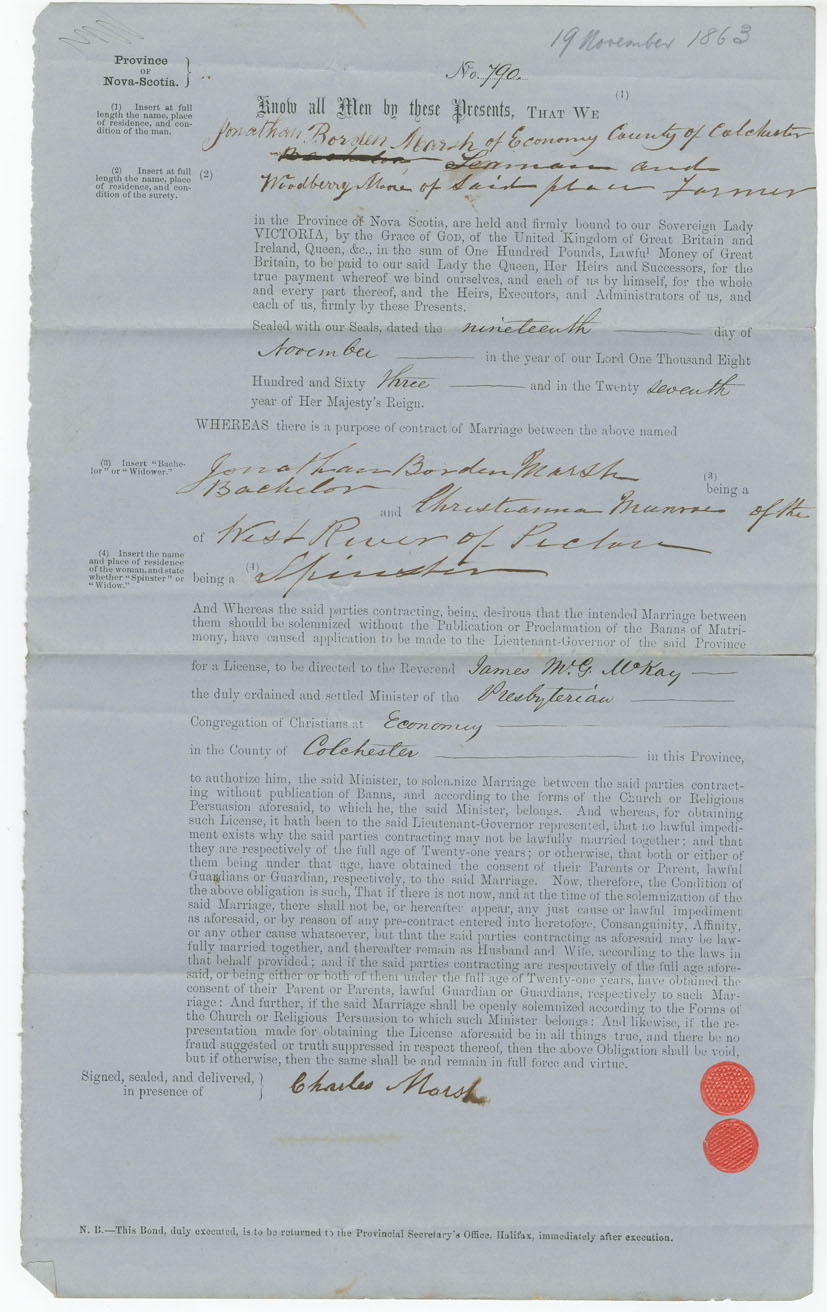 19 November 1863
Province
OF
Nova-Scotia.
No. 790.
(1) Insert at full
length the name, place
of residence, and con-
dition of the man.
(1)
Know all Men by these Presents, THAT WE
Jonathan Borden Marsh of Economy County of Colchester
and
(2) Insert at full
length the name, place
of residence, and con-
dition of the surety.
(2)
Woodberry Moore of Said place Farmer
in the Province of Nova Scotia, are held and firmly bound to our Sovereign Lady
VICTORIA, by the Grace of GOD, of the United Kingdom of Great Britain and
Ireland, Queen, &c., in the sum of One Hundred Pounds, Lawful Money of Great
Britain, to be paid to our said Lady the Queen, Her Heirs and Successors, for the
true payment whereof we bind ourselves, and each of us by himself, for the whole
and every part thereof, and the Heirs, Executors, and Administrators of us, and
each of us, firmly by these Presents.
Sealed with our Seals, dated the nineteenth day of
November in the year of our Lord One Thousand Eight
Hundred and Sixty three and in the Twenty seventh
year of Her Majesty's Reign.
WHEREAS there is a purpose of contract of Marriage between the above named
(3) Insert "Bache-
lor" or "Widower."
Jonathan Borden Marsh
(3)
Bachelor being a
and Christianna Munroe of the
of West River of Pictou
(4) Insert the name
and place of residence
of the woman, and state
whether "Spinster" or
"Widow."
being a (4) Spinster
And Whereas the said parties contracting, being desirous that the intended Marriage between
them should be solemnized without the Publication or Proclamation of the Banns of Matri-
mony, have caused application to be made to the Lieutenant-Governor of the said Province
for a License, to be directed to the Reverend James McG. McKay
the duly ordained and settled Minister of the Presbyterian
Congregation of Christians at Economy
in the County of Colchester in this Province,
to authorize him, the said Minister, to solemnize Marriage between the said parties contract-
ing without publication of Banns, and according to the forms of the Church or Religious
Persuasion aforesaid, to which he, the said Minister, belongs. And whereas, for obtaining
such License, it hath been to the said Lieutenant-Governor represented, that no lawful impedi-
ment exists why the said parties contracting may not be lawfully married together; and that
they are respectively of the full age of Twenty-one years; or otherwise, that both or either of
them being under that age, have obtained the consent of their Parents or Parent, lawful
Guardians or Guardian, respectively, to the said Marriage. Now, therefore, the Condition of
the above obligation is such, That if there is not now, and at the time of the solemnization of the
said Marriage, there shall not be, or hereafter appear, any just cause or lawful impediment
as aforesaid, or by reason of any pre-contract entered into heretofore, Consanguinity, Affinity,
or any other cause whatsoever, but that the said parties contracting as aforesaid may be law-
fully married together, and thereafter remain as Husband and Wife, according to the laws in
that behalf provided; and if the said parties contracting are respectively of the full age afore-
said, or being either or both of them under the full age of Twenty-one years, have obtained the
consent of their Parent or Parents, lawful Guardian or Guardians, respectively to such Mar-
riage: And further, if the said Marriage shall be openly solemnized according to the Forms of
the Church or Religious Persuasion to which such Minister belongs: And likewise, if the re-
presentation made for obtaining the License aforesaid be in all things true, and there be no
fraud suggested or truth suppressed in respect thereof, then the above Obligation shall be void,
but if otherwise, then the same shall be and remain in full force and virtue.
Signed, sealed, and delivered,
in presence of
Charles Marsh
N. B.—This Bond, duly executed, is to be returned to the Provincial Secretary's Office, Halifax, immediately after execution.